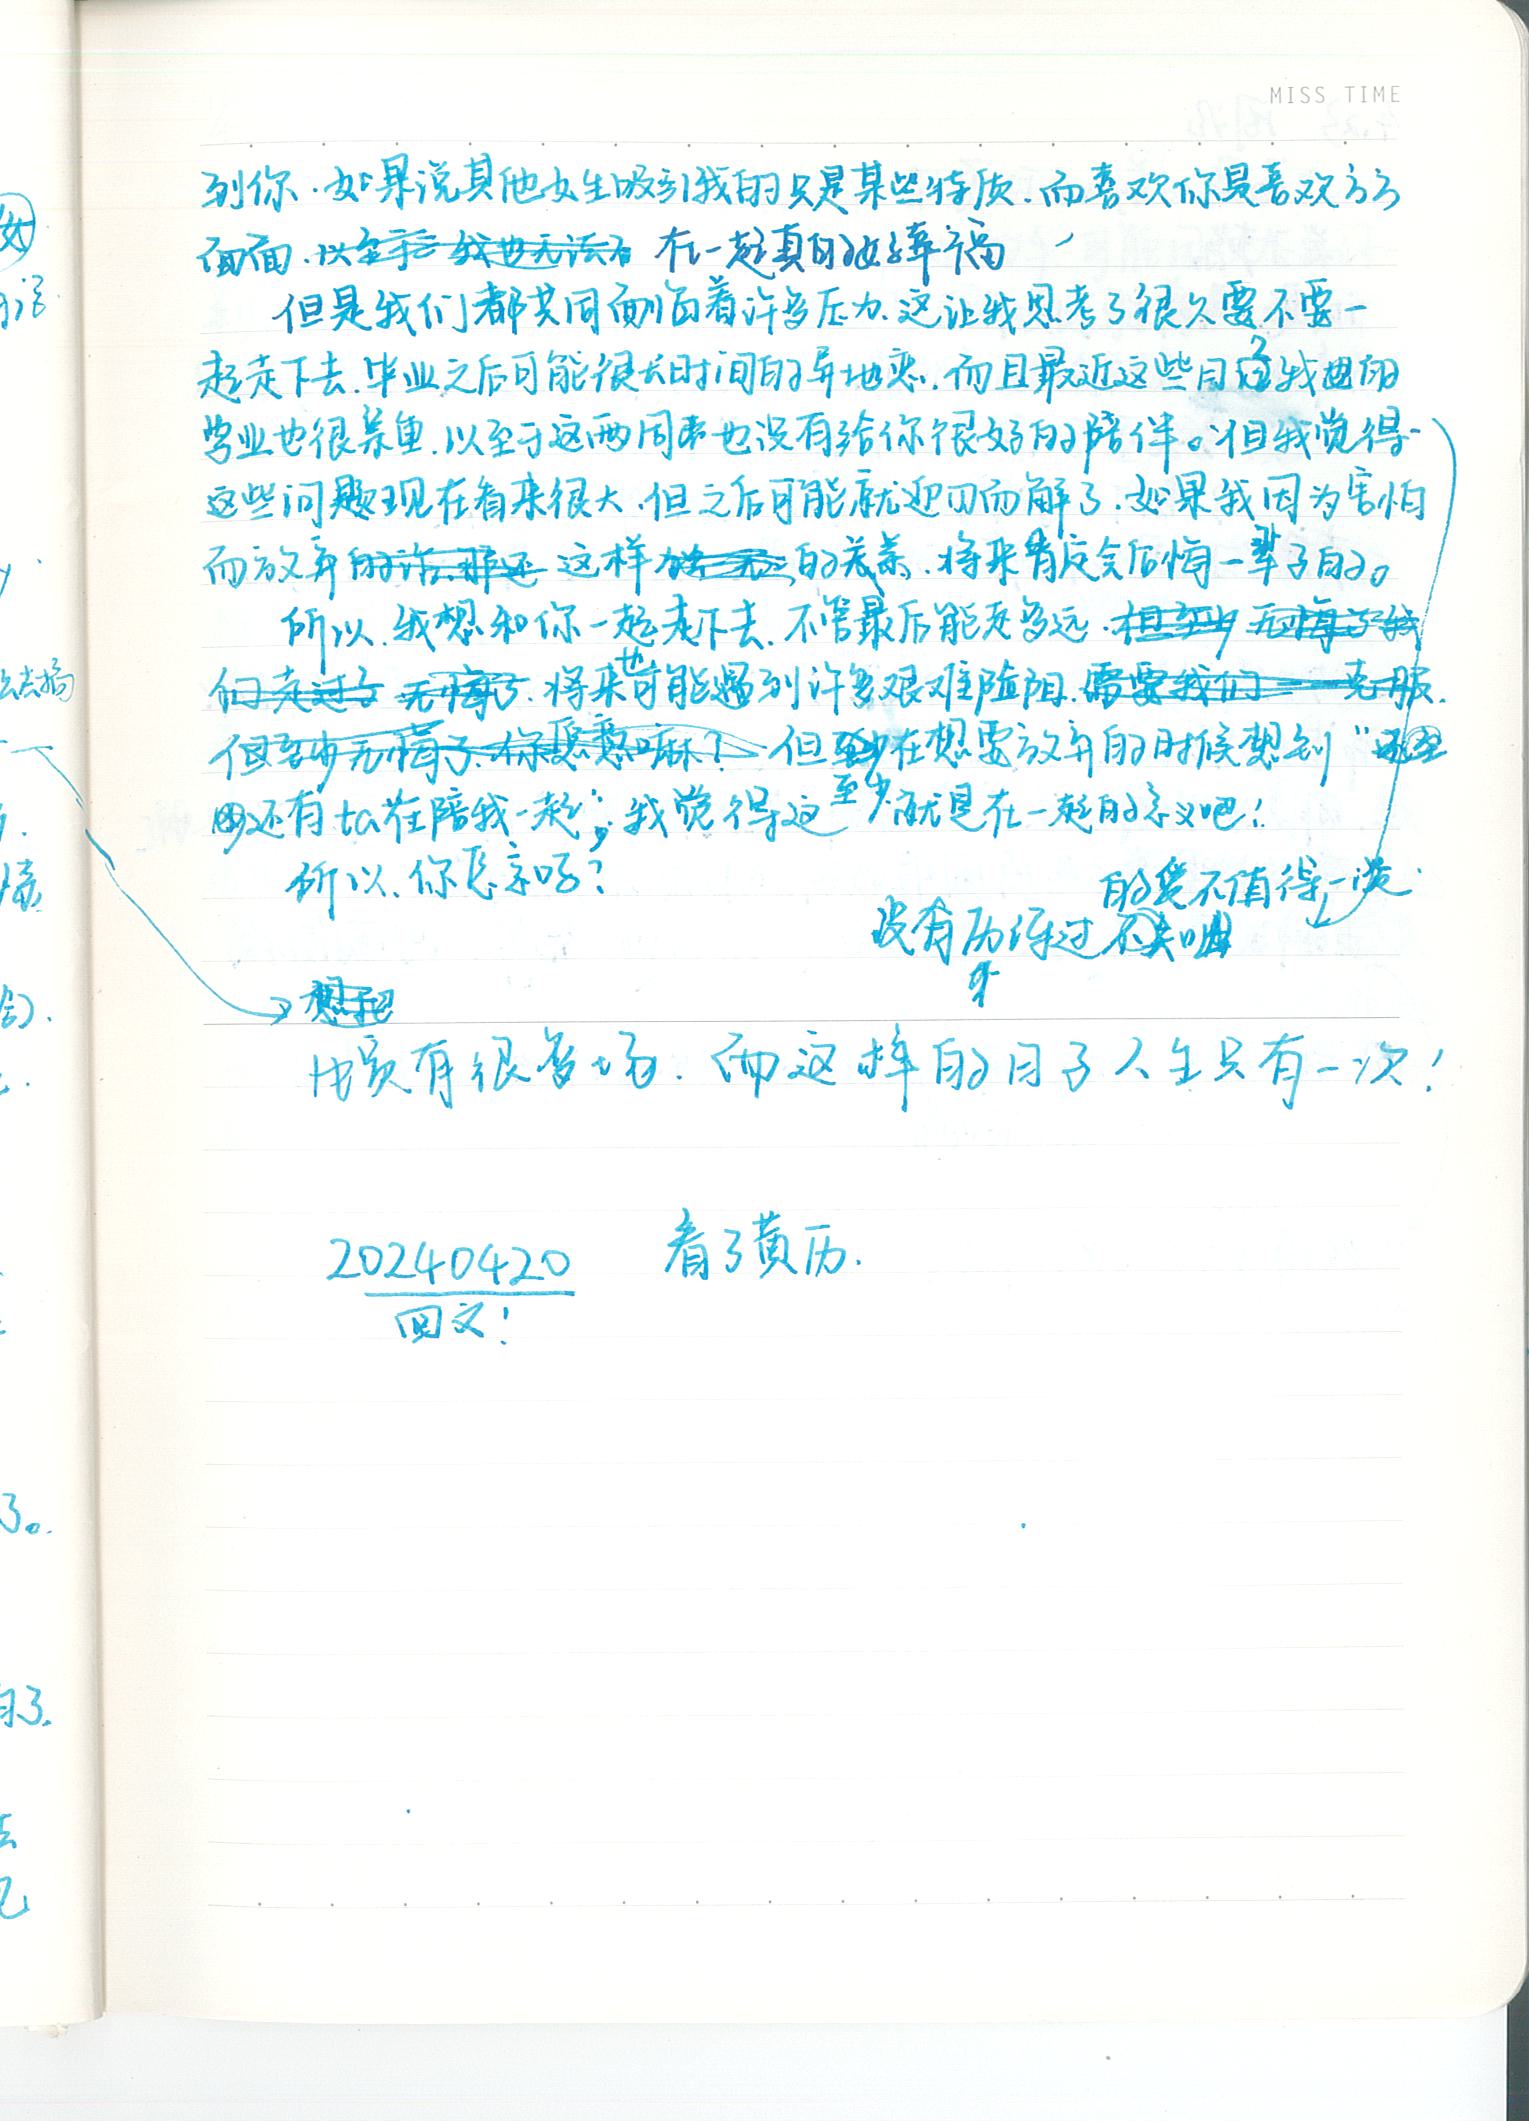 MISS TIME
到你.如果说其他女生吸引我的只是某些特质.而喜欢你是喜欢方方
面面.以至于 我也无法 在一起真的好幸福
但是我们都共同面临着许多压力.这让我思考了很久要不要一
起走下去.毕业之后可能很长时间的异地恋.而且最近这些日 我 的
学业也很 .以至于这两周 也没有给你很好的陪伴。但我觉得
这些问题现在看来很大.但之后可能就迎刃而解了.如果我因为害怕
而放弃的话 那还 这样 的 .将来肯定会后悔一辈子的。
所以.我想和你一起走下去.不管最后能走多远.但至少 无悔了 我
们走过了 无悔了.将来也可能遇到许多艰难险阻.需要我们一 克服.
但至少无悔了.你愿意嘛? 但 在想要放弃的时候想到“
还有ta在陪我一起”,我觉得这至少就是在一起的意义吧!
所以.你怎么 ?
的爱不值得一谈.
没有历 过不
想把
电影有很多场.而这样的日子人生只有一次!
20240420 看了黄历.
回文!